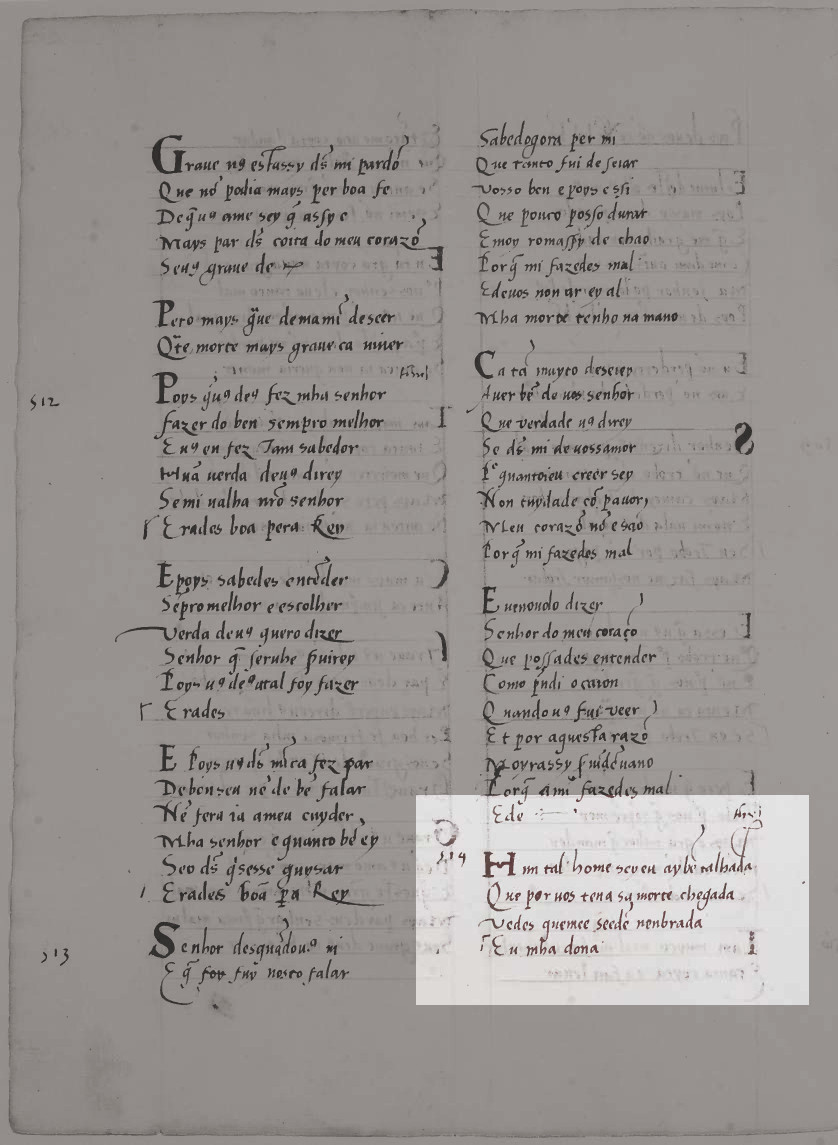 Graue ug estassy ds mi pardo
Que no podia mays per boa fe
De ame sey q assy e
Mays par ds coita do meu corazo
Seug graue de
Pero mays deseer
morte mays graue ca uiuer
512
Poys deg fez mha senhor
fazer do ben sempro melhor
E ug eu fez Tam sabedor
Hua uerda deug direy
Se mi ualha nro senhor
Erades boa pera Rey
E poys sabedes enteder
Sepro melhor e escolher
Verda deug quero dizer
Senhor q seruhe
Poys ug deg atal foy fazer
Erades
E Poys ug ds fez par
De bon seu ne de be falar
Ne fera ia a meu cuyder
Mha senhor e quanto be ey
Seo ds quysar
Erades boa pa Rey
513
Senhor ug mi
E q foy fuy nosco falar
Sabedogora per mi
Que tanto fui deseiar
Vosso ben e poys essi
Que pouco posso durar
E moyromassy de chao
Porq mi fazedes mal
Edeuos non ar ey al
Mha morte tenho na mano
Ca ta muyto deseiey
Auer be de uos senhor
Que uerdade ug direy
Se ds mi de uossamor
creer sey
Non cuydade co pauor
Meu corazo no e sao
Porq mi fazedes mal
E uenouolo dizer
Senhor do meu coraço
Que possades entender
Como pndi o caion
Quando ug fui ueer
Et por aquesta razo
Moyrassy
Porq ami fazedes mal
Ede
514
Hun tal home sey eu ay be talhada
Que por uos tena sa morte chegada
Vedes quem e seede nenbrada
Eu mha dona